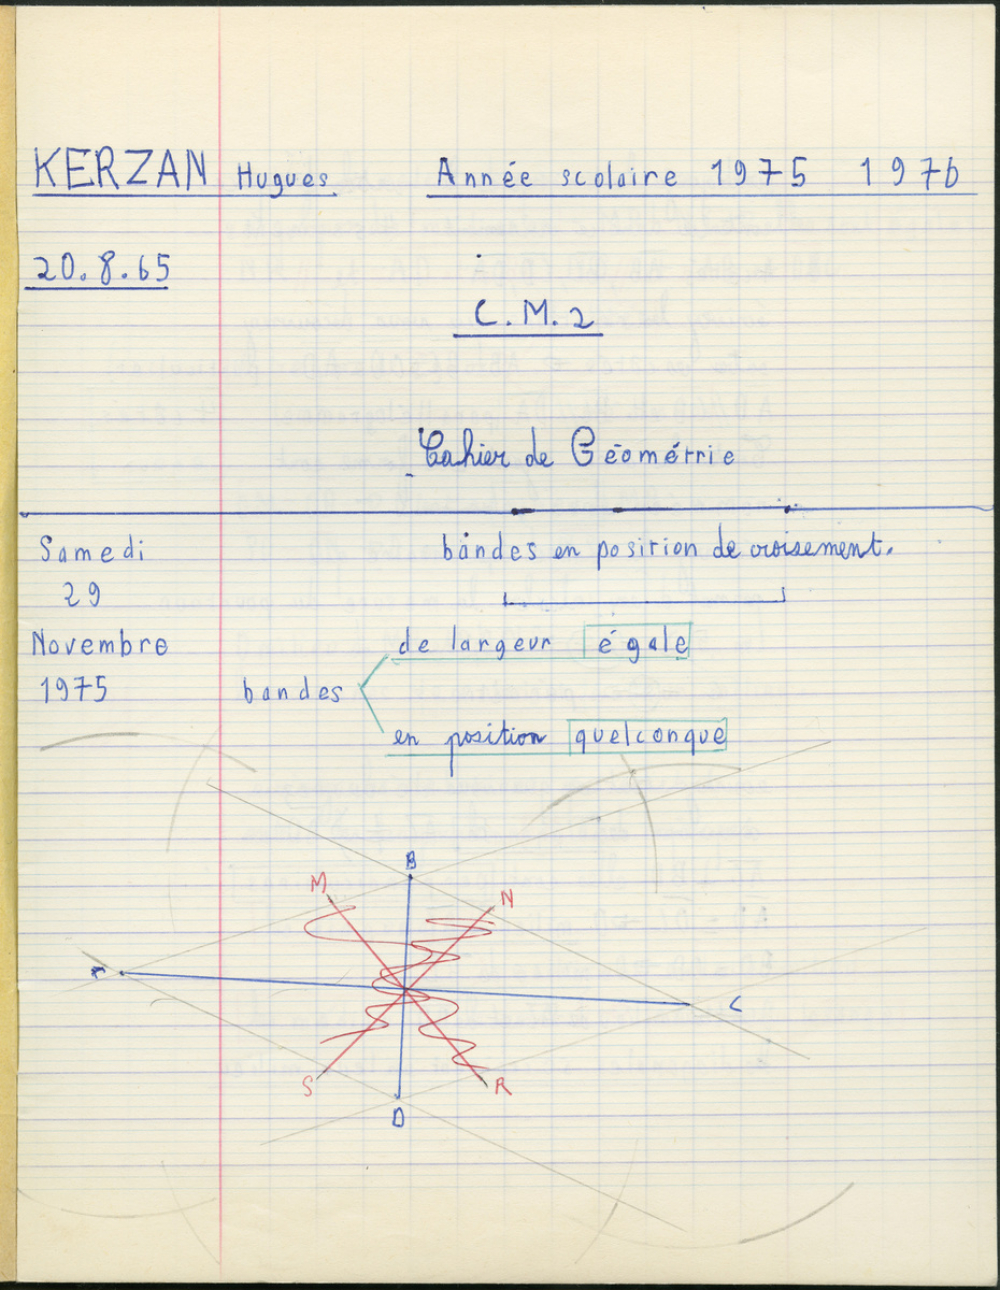 KERZAN Hugues. Année scolaire 1975 1976
20.8.65
C.M.2
Cahier de Géométrie
Samedi
29
Novembre
1975
bandes en position de croisement.
de largeur égale
bandes
en position quelconque
B
M
N
C
S
R
D